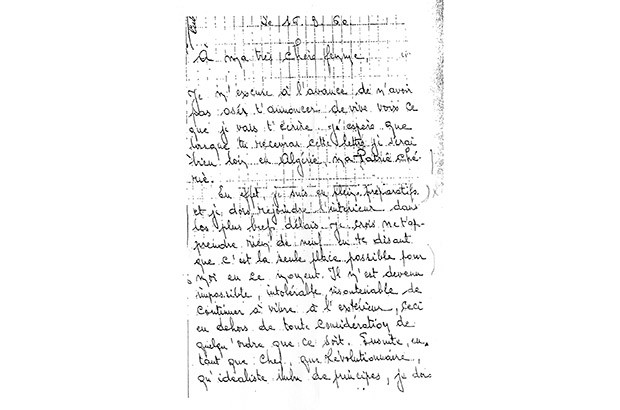 le 15.9.60
À ma très chère femme,
Je m'excuse à l'avance de n'avoir
pas osé t'annoncer de vive voix ce
que je vais t'écrire. J'espère que
lorsque tu recevras cette lettre je serai
bien loin en Algérie, ma Patrie ché-
rie.
En effet, je suis en pleins préparatifs
et je dois rejoindre l'intérieur dans
les plus brefs délais. Je crois ne t'ap-
prendre rien de neuf en te disant
que c'est la seule place possible pour
moi en ce moment. Il m'est devenu
impossible, intolérable, insoutenable de
continuer à vivre à l'extérieur, ceci
en dehors de toute considération de
quelqu'ordre que ce soit. Ensuite, en
tant que Chef, que Révolutionnaire,
qu'idéaliste imbu de principes, je dois